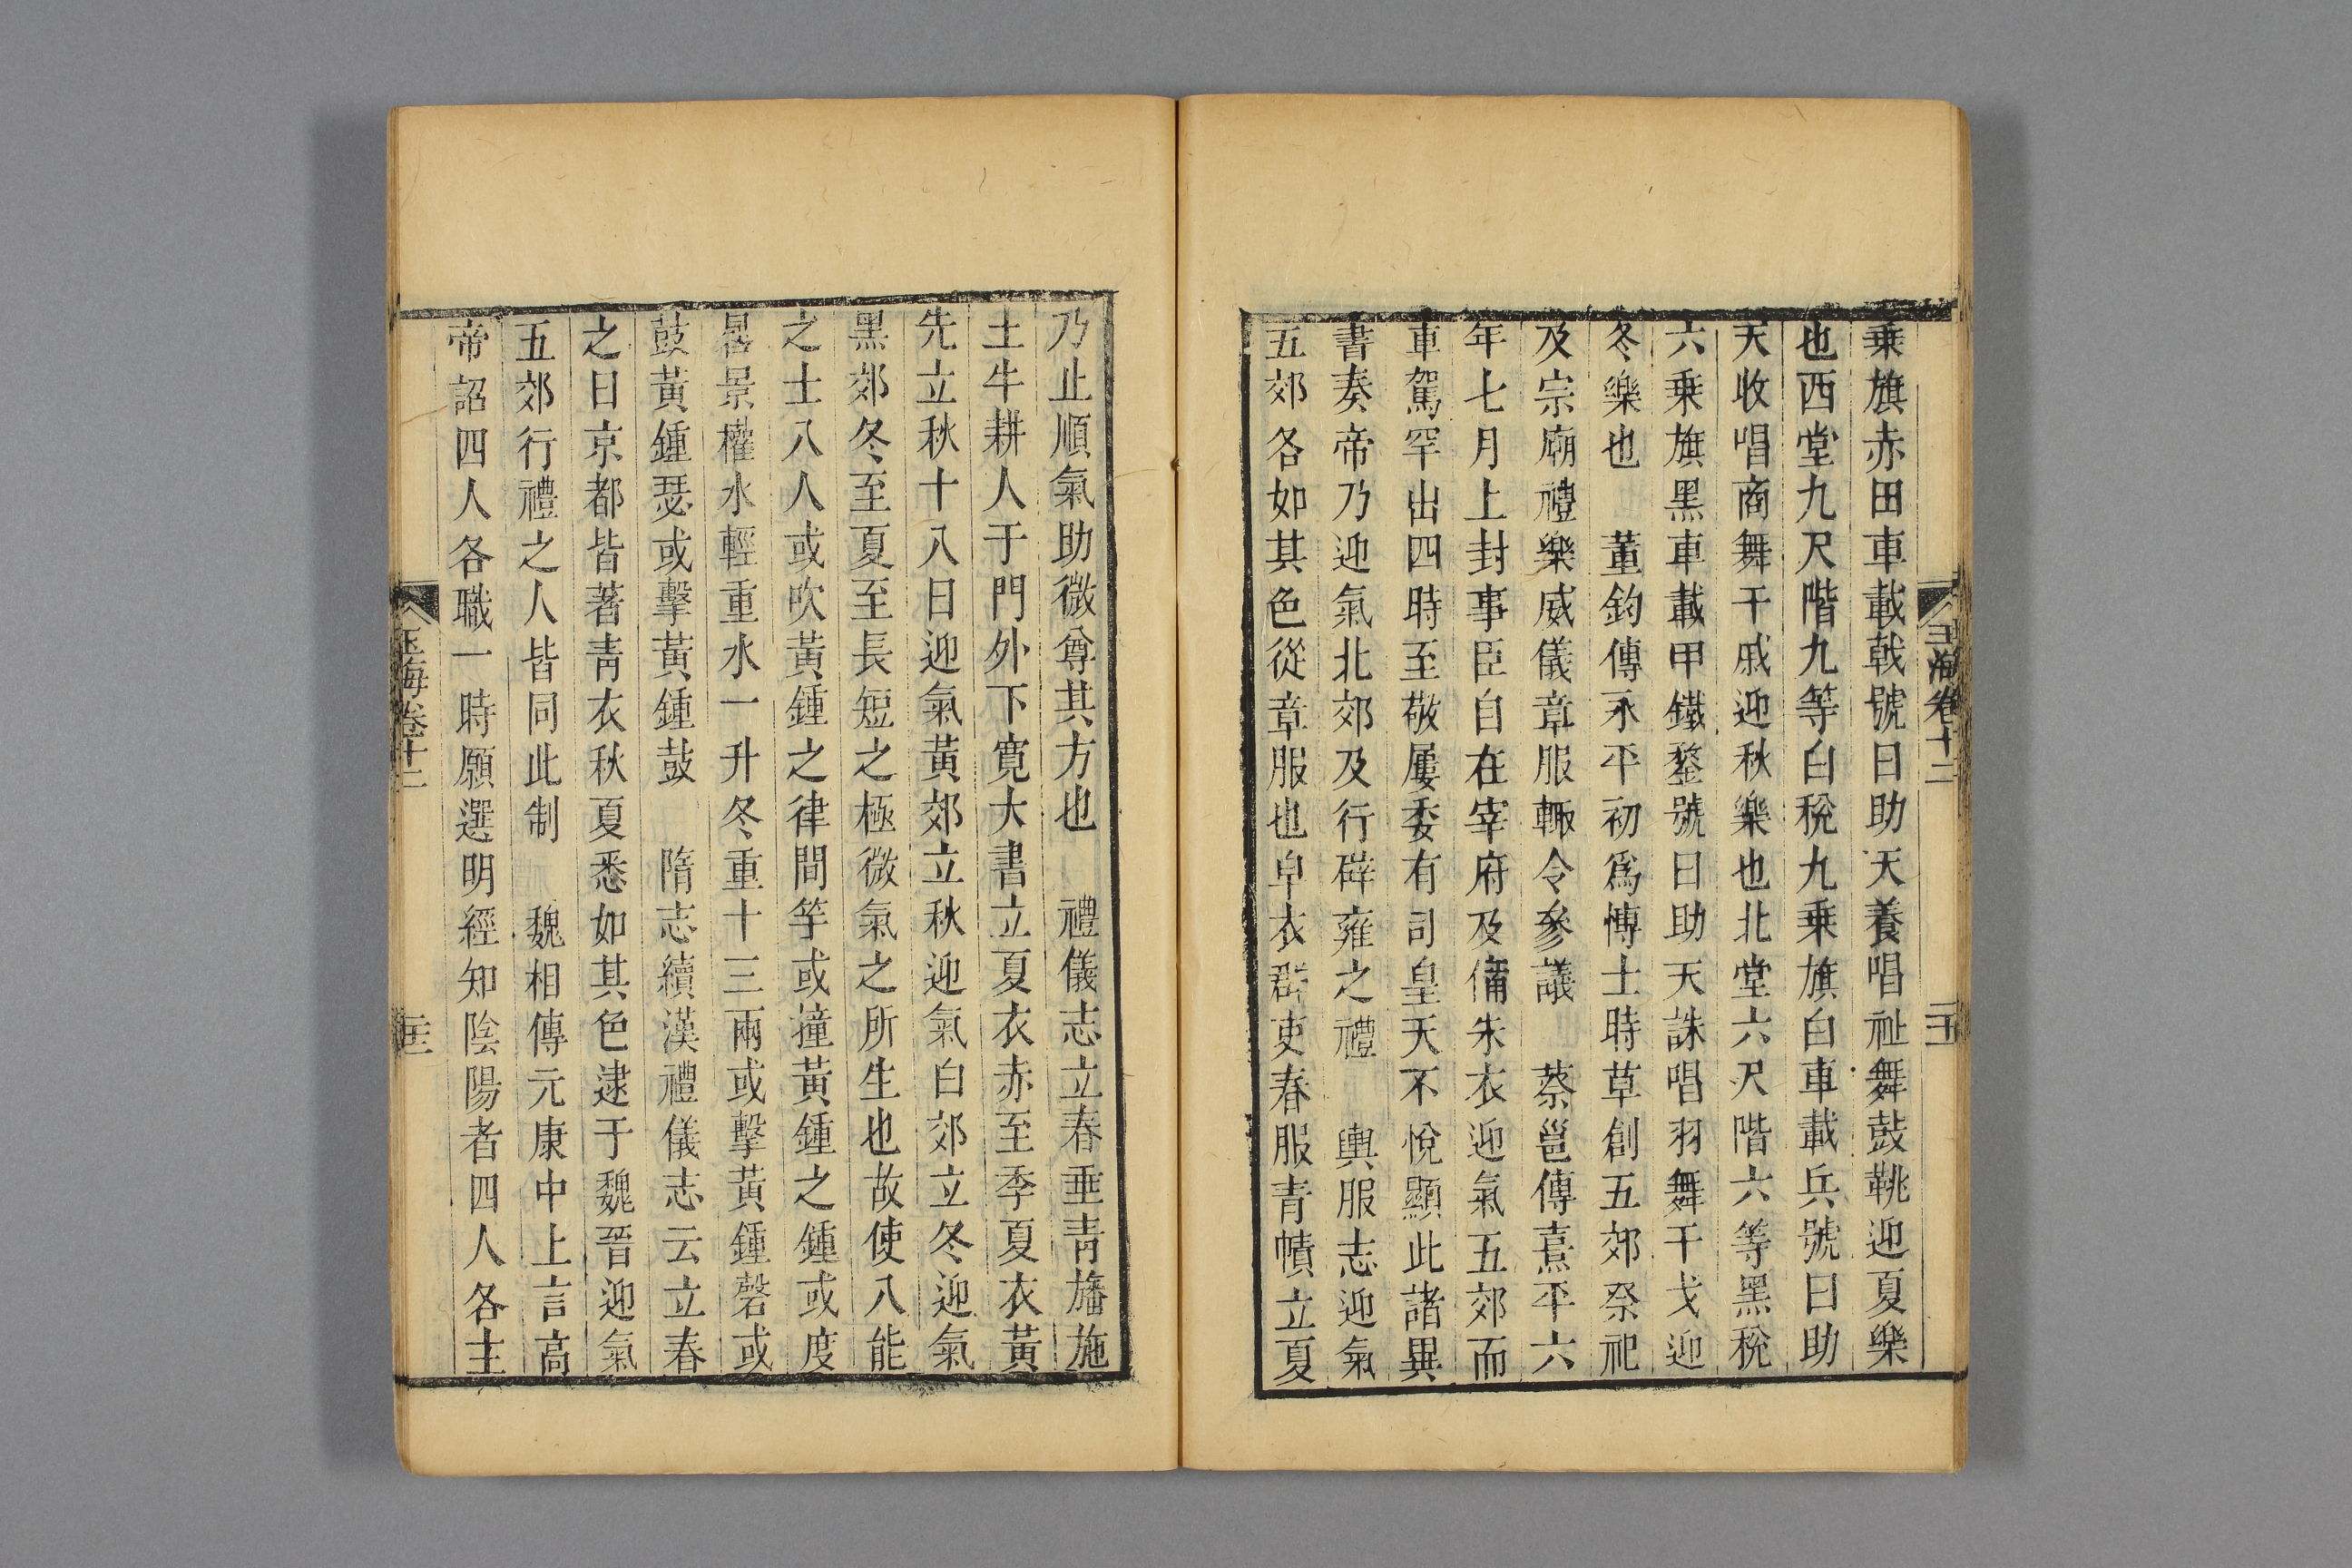 乗旗赤田車載戟號曰助天養唱祉舞鼓鞉迎夏樂
也西堂九尺階九等白稅九乗旗白車載兵號曰助
天收唱商舞干戚迎秋樂也北堂六尺階六等黑稅
六乗旗黑車載甲鐵鍪號曰助天誅唱羽舞干戈迎
冬樂也　董鈞傳永平初爲博士時草創五郊祭祀
及宗廟禮樂威儀章服輒令參議　蔡邕傳熹平六
年七月上封事臣自在宰府及備朱衣迎氣五郊而
車駕罕出四時至敬屢委有司皇天不悅顯此諸異
書奏帝乃迎氣北郊及行辟雍之禮　輿服志迎氣
五郊各如其色從章服也皁衣群吏春服青幘立夏
乃止順氣助微尊其方也　禮儀志立春垂靑旛施
土牛耕人于門外下寬大書立夏衣赤至季夏衣黃
先立秋十八日迎氣黃郊立秋迎氣白郊立冬迎氣
黑郊冬至夏至長短之極微氣之所生也故使八能
之士八人或吹黃鍾之律間竽或撞黃鍾之鍾或度
晷景權水輕重水一升冬重十三兩或擊黃鍾磬或
鼓黃鍾瑟或擊黃鍾鼓　隋志續漢禮儀志云立春
之日京都皆著靑衣秋夏悉如其色逮于魏晉迎氣
五郊行禮之人皆同此制　魏相傳元康中上言高
帝詔四人各職一時願選明經知陰陽者四人各主
玉海卷十二